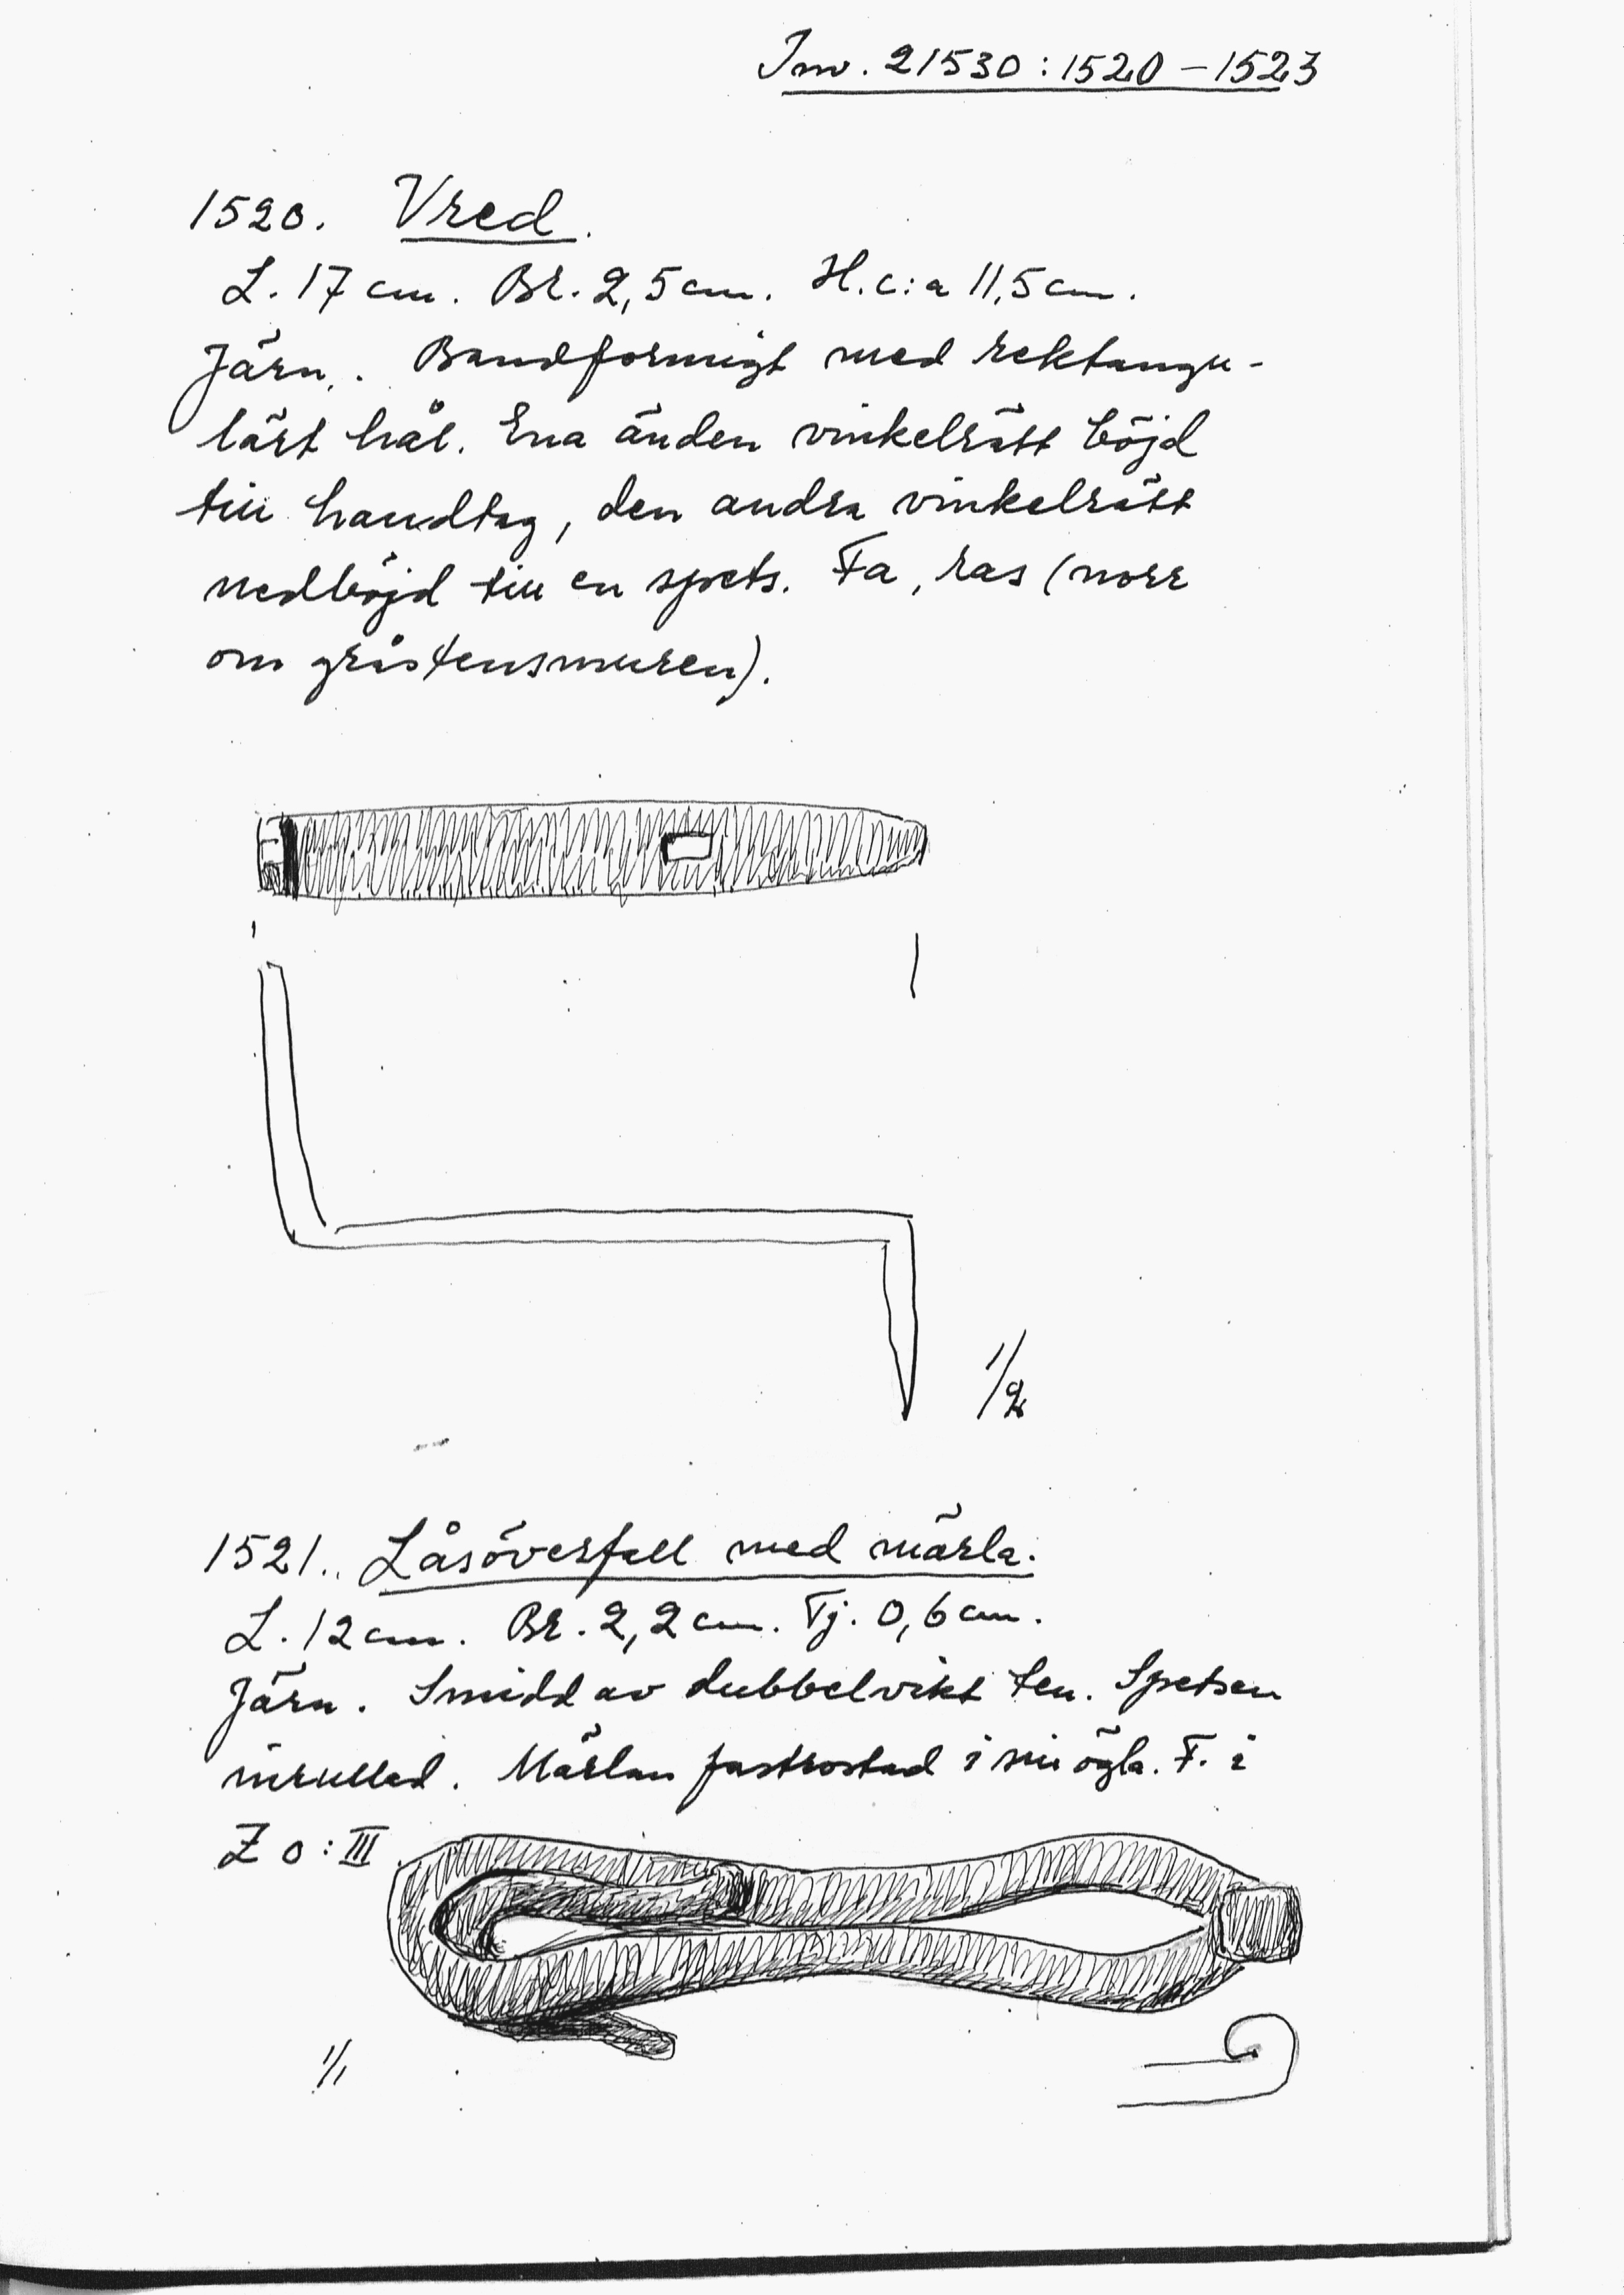 Inv. 21530:1520–1523
1520. Vred.
L. 17 cm. Br. 2,5 cm. H. c:a 11,5 cm.
Järn. Bandformigt med rektangu-
lärt hål. Ena änden vinkelrätt böjd
till handtag, den andra vinkelrätt
nedböjd till en spets. Fa, ras (norr
om gråstensmuren).
1/2
1521. Låsöverfall med märla.
L. 12 cm. Br. 2,2 cm. Tj. 0,6 cm.
Järn. Smidd av dubbelvikt ten. Spetsen
inrullad. Märlan fastrostad i sin ögla. F. i
Z 0:III.
1/1